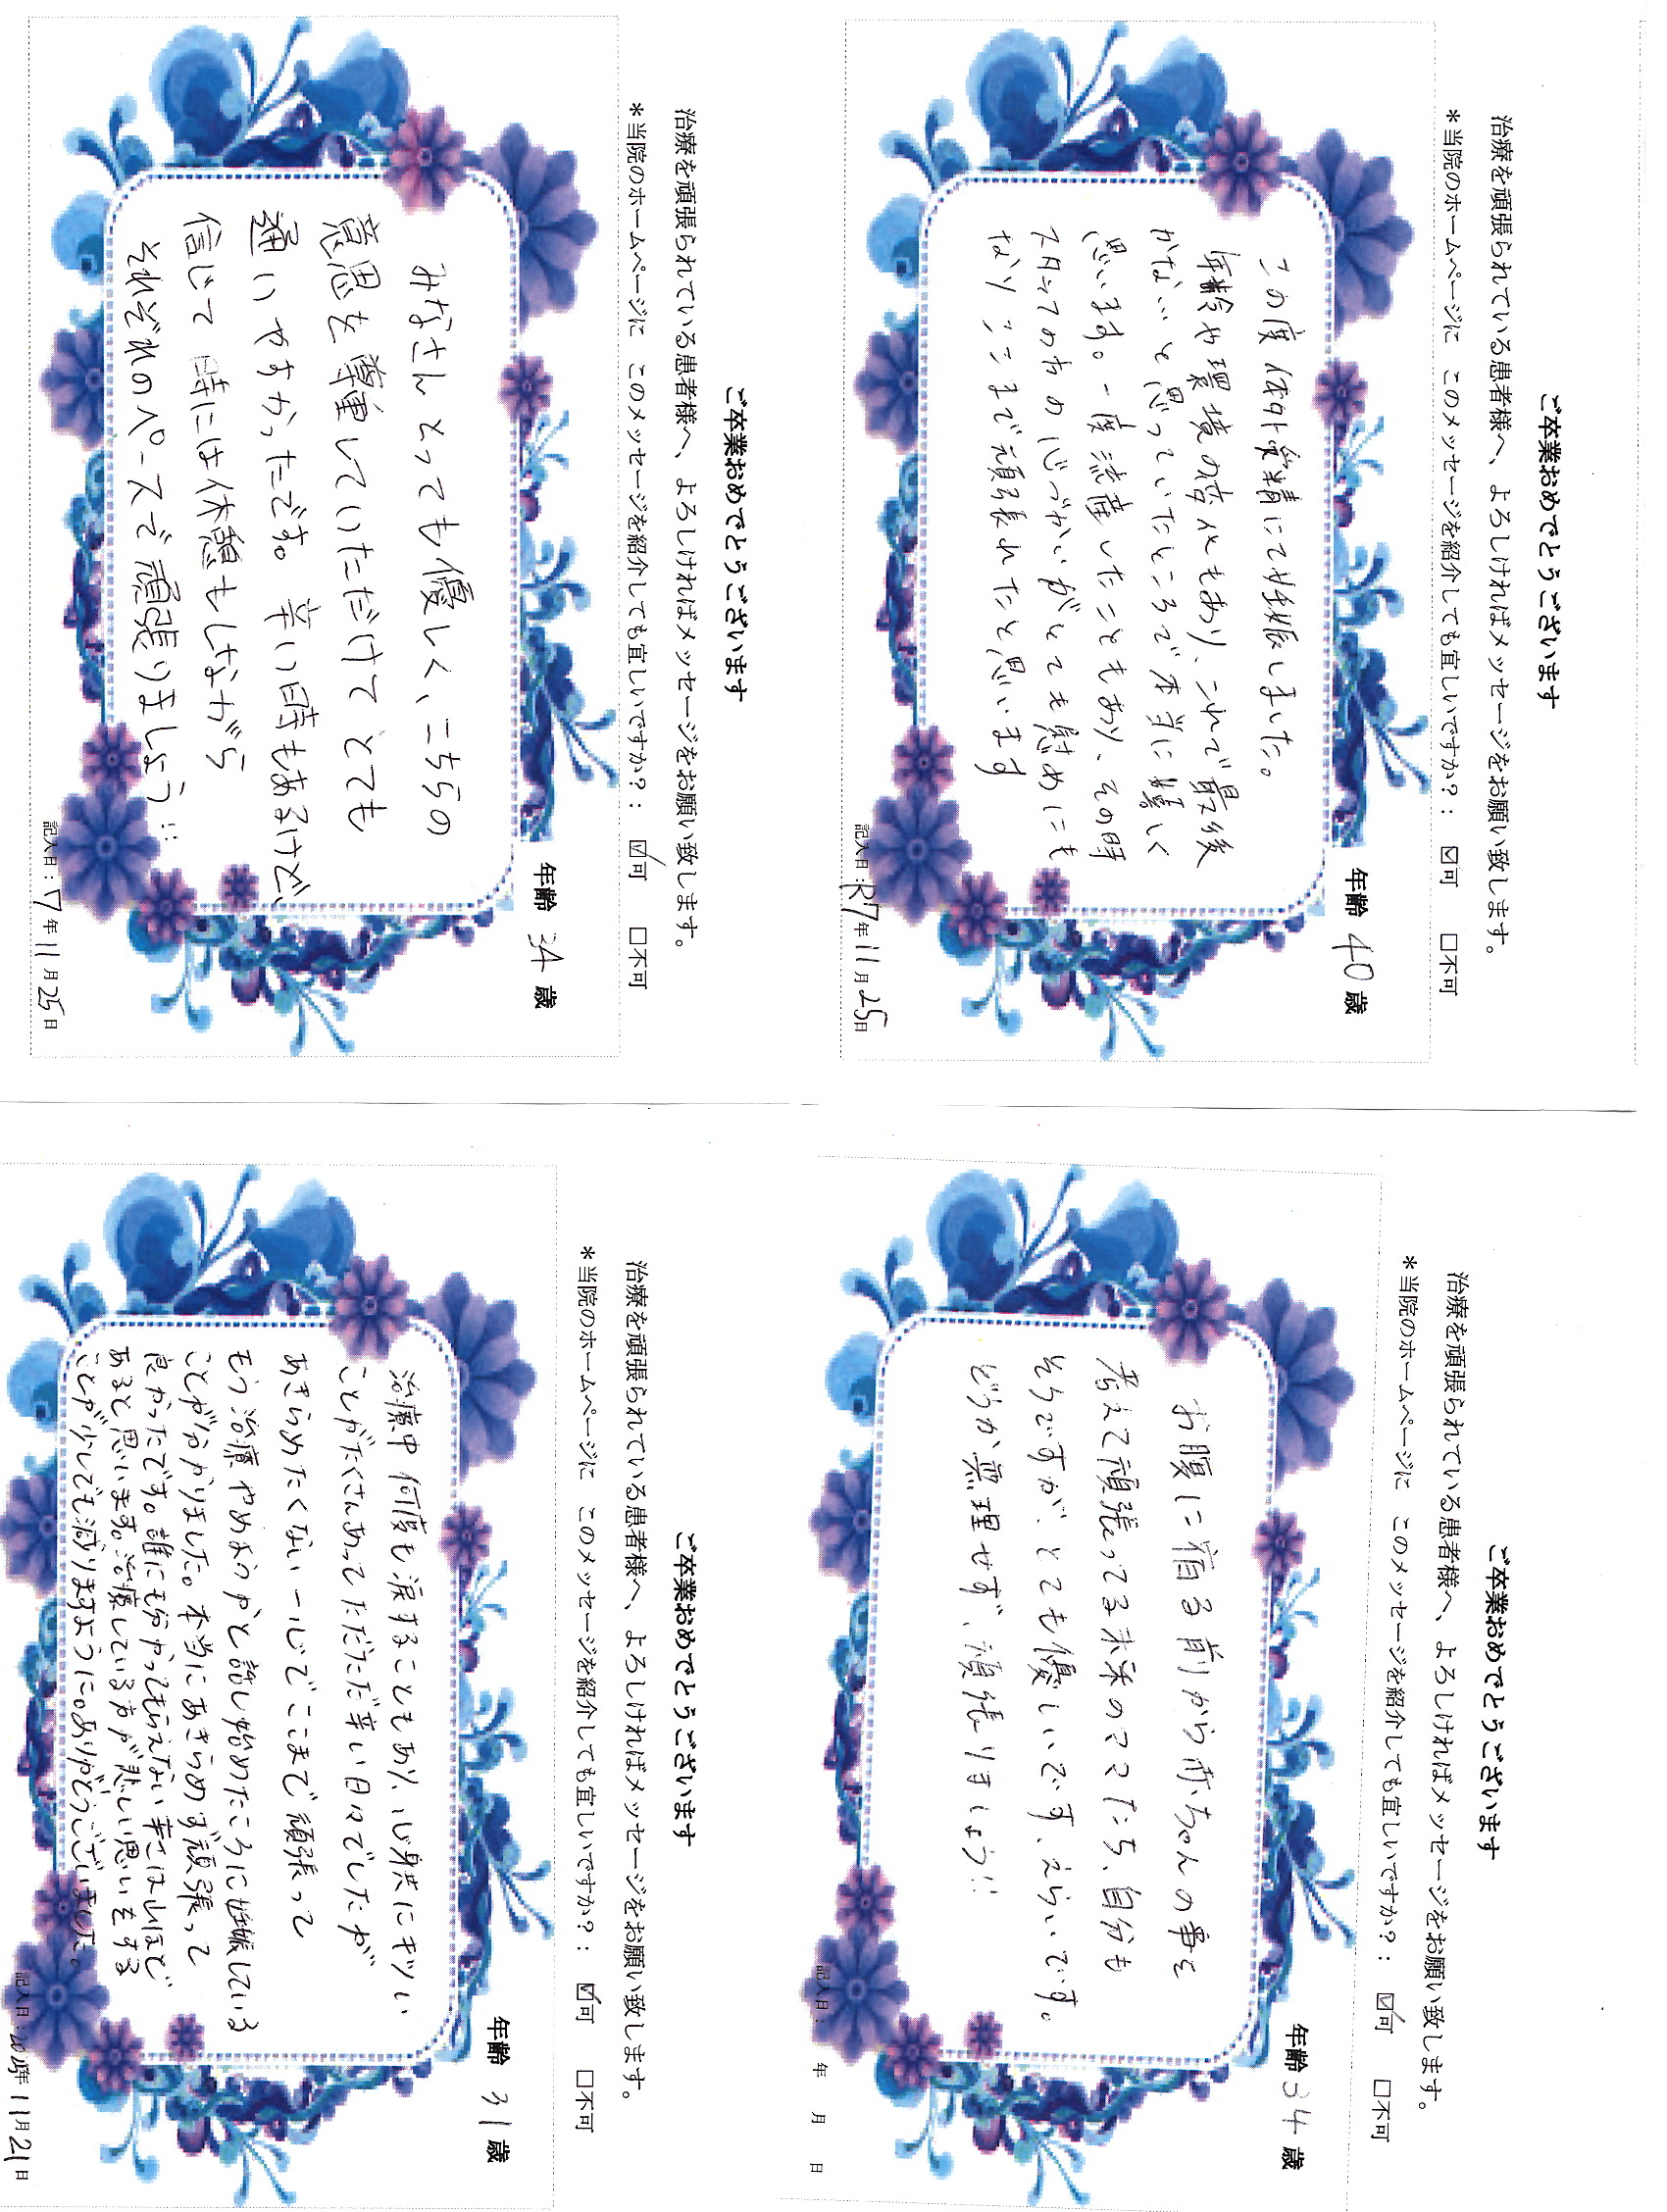 ご卒業おめでとうございます
治療を頑張られている患者様へ、よろしければメッセージをお願い致します。
*当院のホームページに このメッセージを紹介しても宜しいですか？： ☑可 □不可
年齢 40 歳
この度 体外受精にて妊娠しました。
年齢や環境の変化もあり、これで最後
かな…と思っていたところで本当に嬉しく
思います。一度流産したこともあり、その時
スタッフの方の心づかいがとても慰めにも
なり ここまで頑張れたと思います
記入日：R7年11月25日
ご卒業おめでとうございます
治療を頑張られている患者様へ、よろしければメッセージをお願い致します。
*当院のホームページに このメッセージを紹介しても宜しいですか？： ☑可 □不可
年齢 34 歳
みなさん とっても優しく、こちらの
意思を尊重していただけて とても
通いやすかったです。辛い時もあるけど、
信じて 時には休憩もしながら
それぞれのペースで頑張りましょう!!
記入日：7年11月25日
ご卒業おめでとうございます
治療を頑張られている患者様へ、よろしければメッセージをお願い致します。
*当院のホームページに このメッセージを紹介しても宜しいですか？： ☑可 □不可
年齢 34 歳
お腹に宿る前から赤ちゃんの事を
考えて頑張ってる未来のママたち、自分も
そうですが、とても優しいです、えらいです。
どうか無理せず、頑張りましょう!!
記入日： 年 月 日
ご卒業おめでとうございます
治療を頑張られている患者様へ、よろしければメッセージをお願い致します。
*当院のホームページに このメッセージを紹介しても宜しいですか？： ☑可 □不可
年齢 31 歳
治療中 何度も涙することもあり、心身共にキツい
ことがたくさんあってただただ辛い日々でしたが
あきらめたくない一心でここまで頑張って
もう治療やめようか、と話し始めたころに妊娠している
ことが分かりました。本当にあきらめず頑張って
良かったです。誰にも分かってもらえない辛さは山ほど
あると思います。治療している方が悲しい思いをする
ことが少しでも減りますように。ありがとうございました。
記入日： 年11月21日